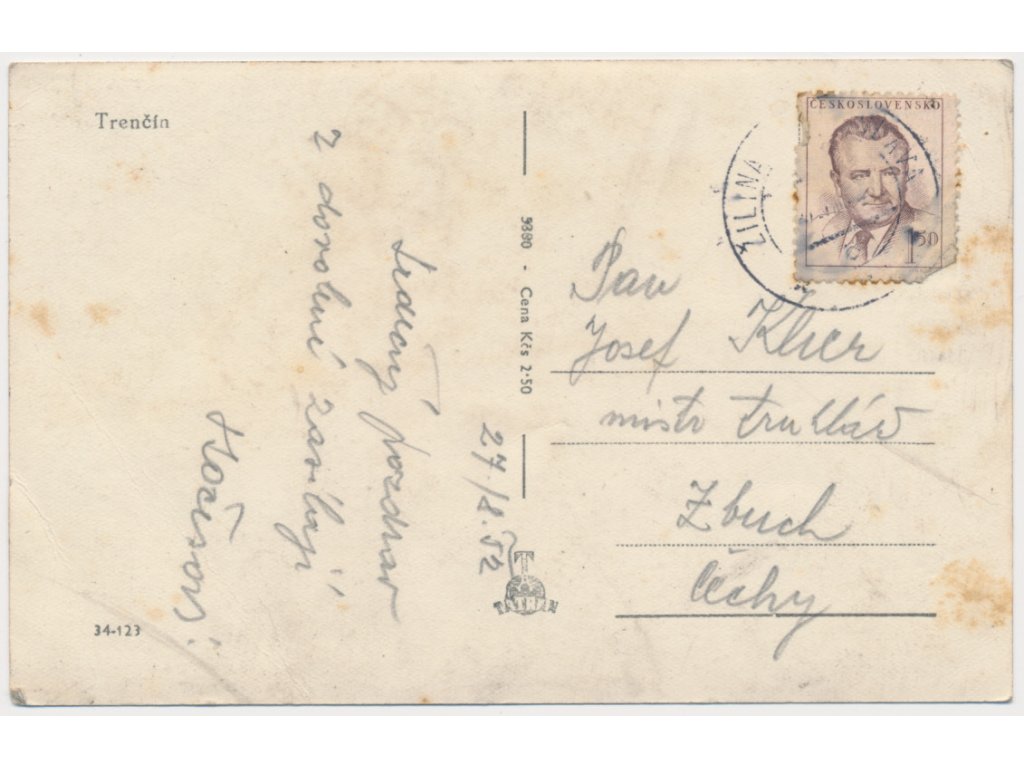 Trenčín
27/8.52
Srdečný pozdrav
z dovolené zasílají
34-123
5380 - Cena Kčs 2·50
TATRAN
ČESKOSLOVENSKO
1 50
ŽILINA
Pan
Josef Klier
mistr truhlář
Zbuch
Čechy